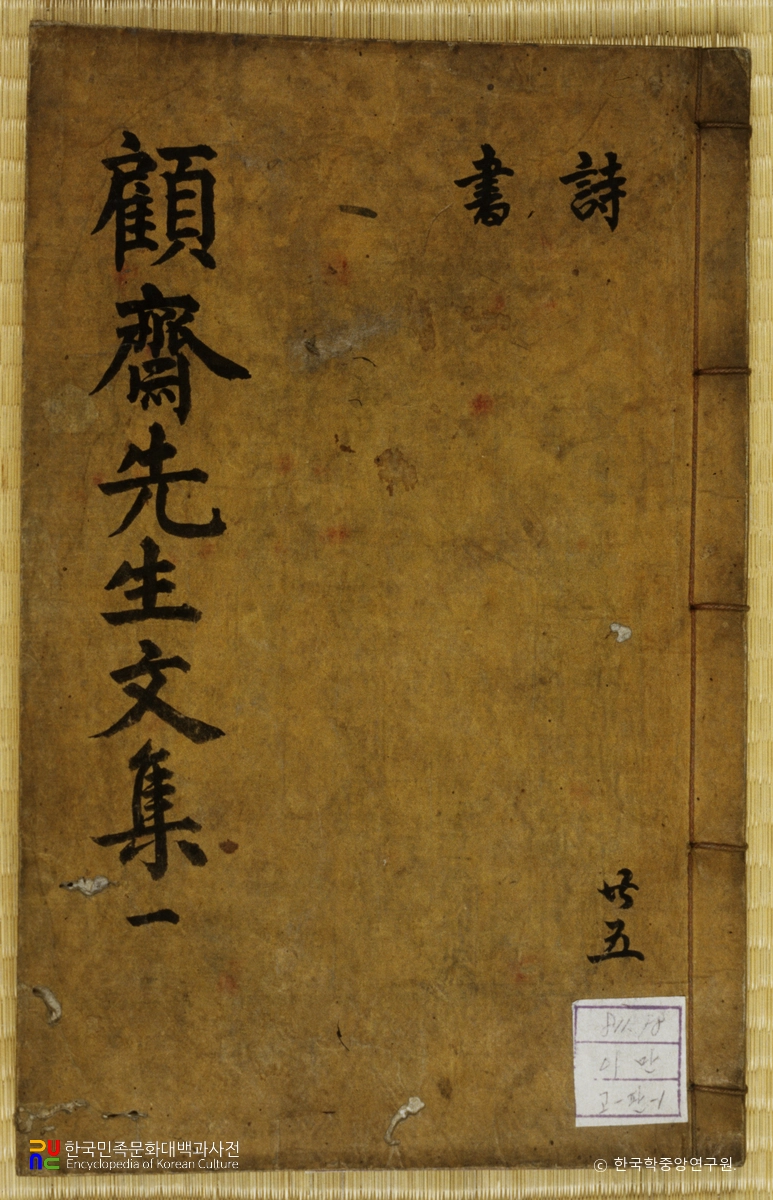 詩
書
顧齋先生文集一
共五
이만
고-판-1
한국민족문화대백과사전
Encyclopedia of Korean Culture
© 한국학중앙연구원